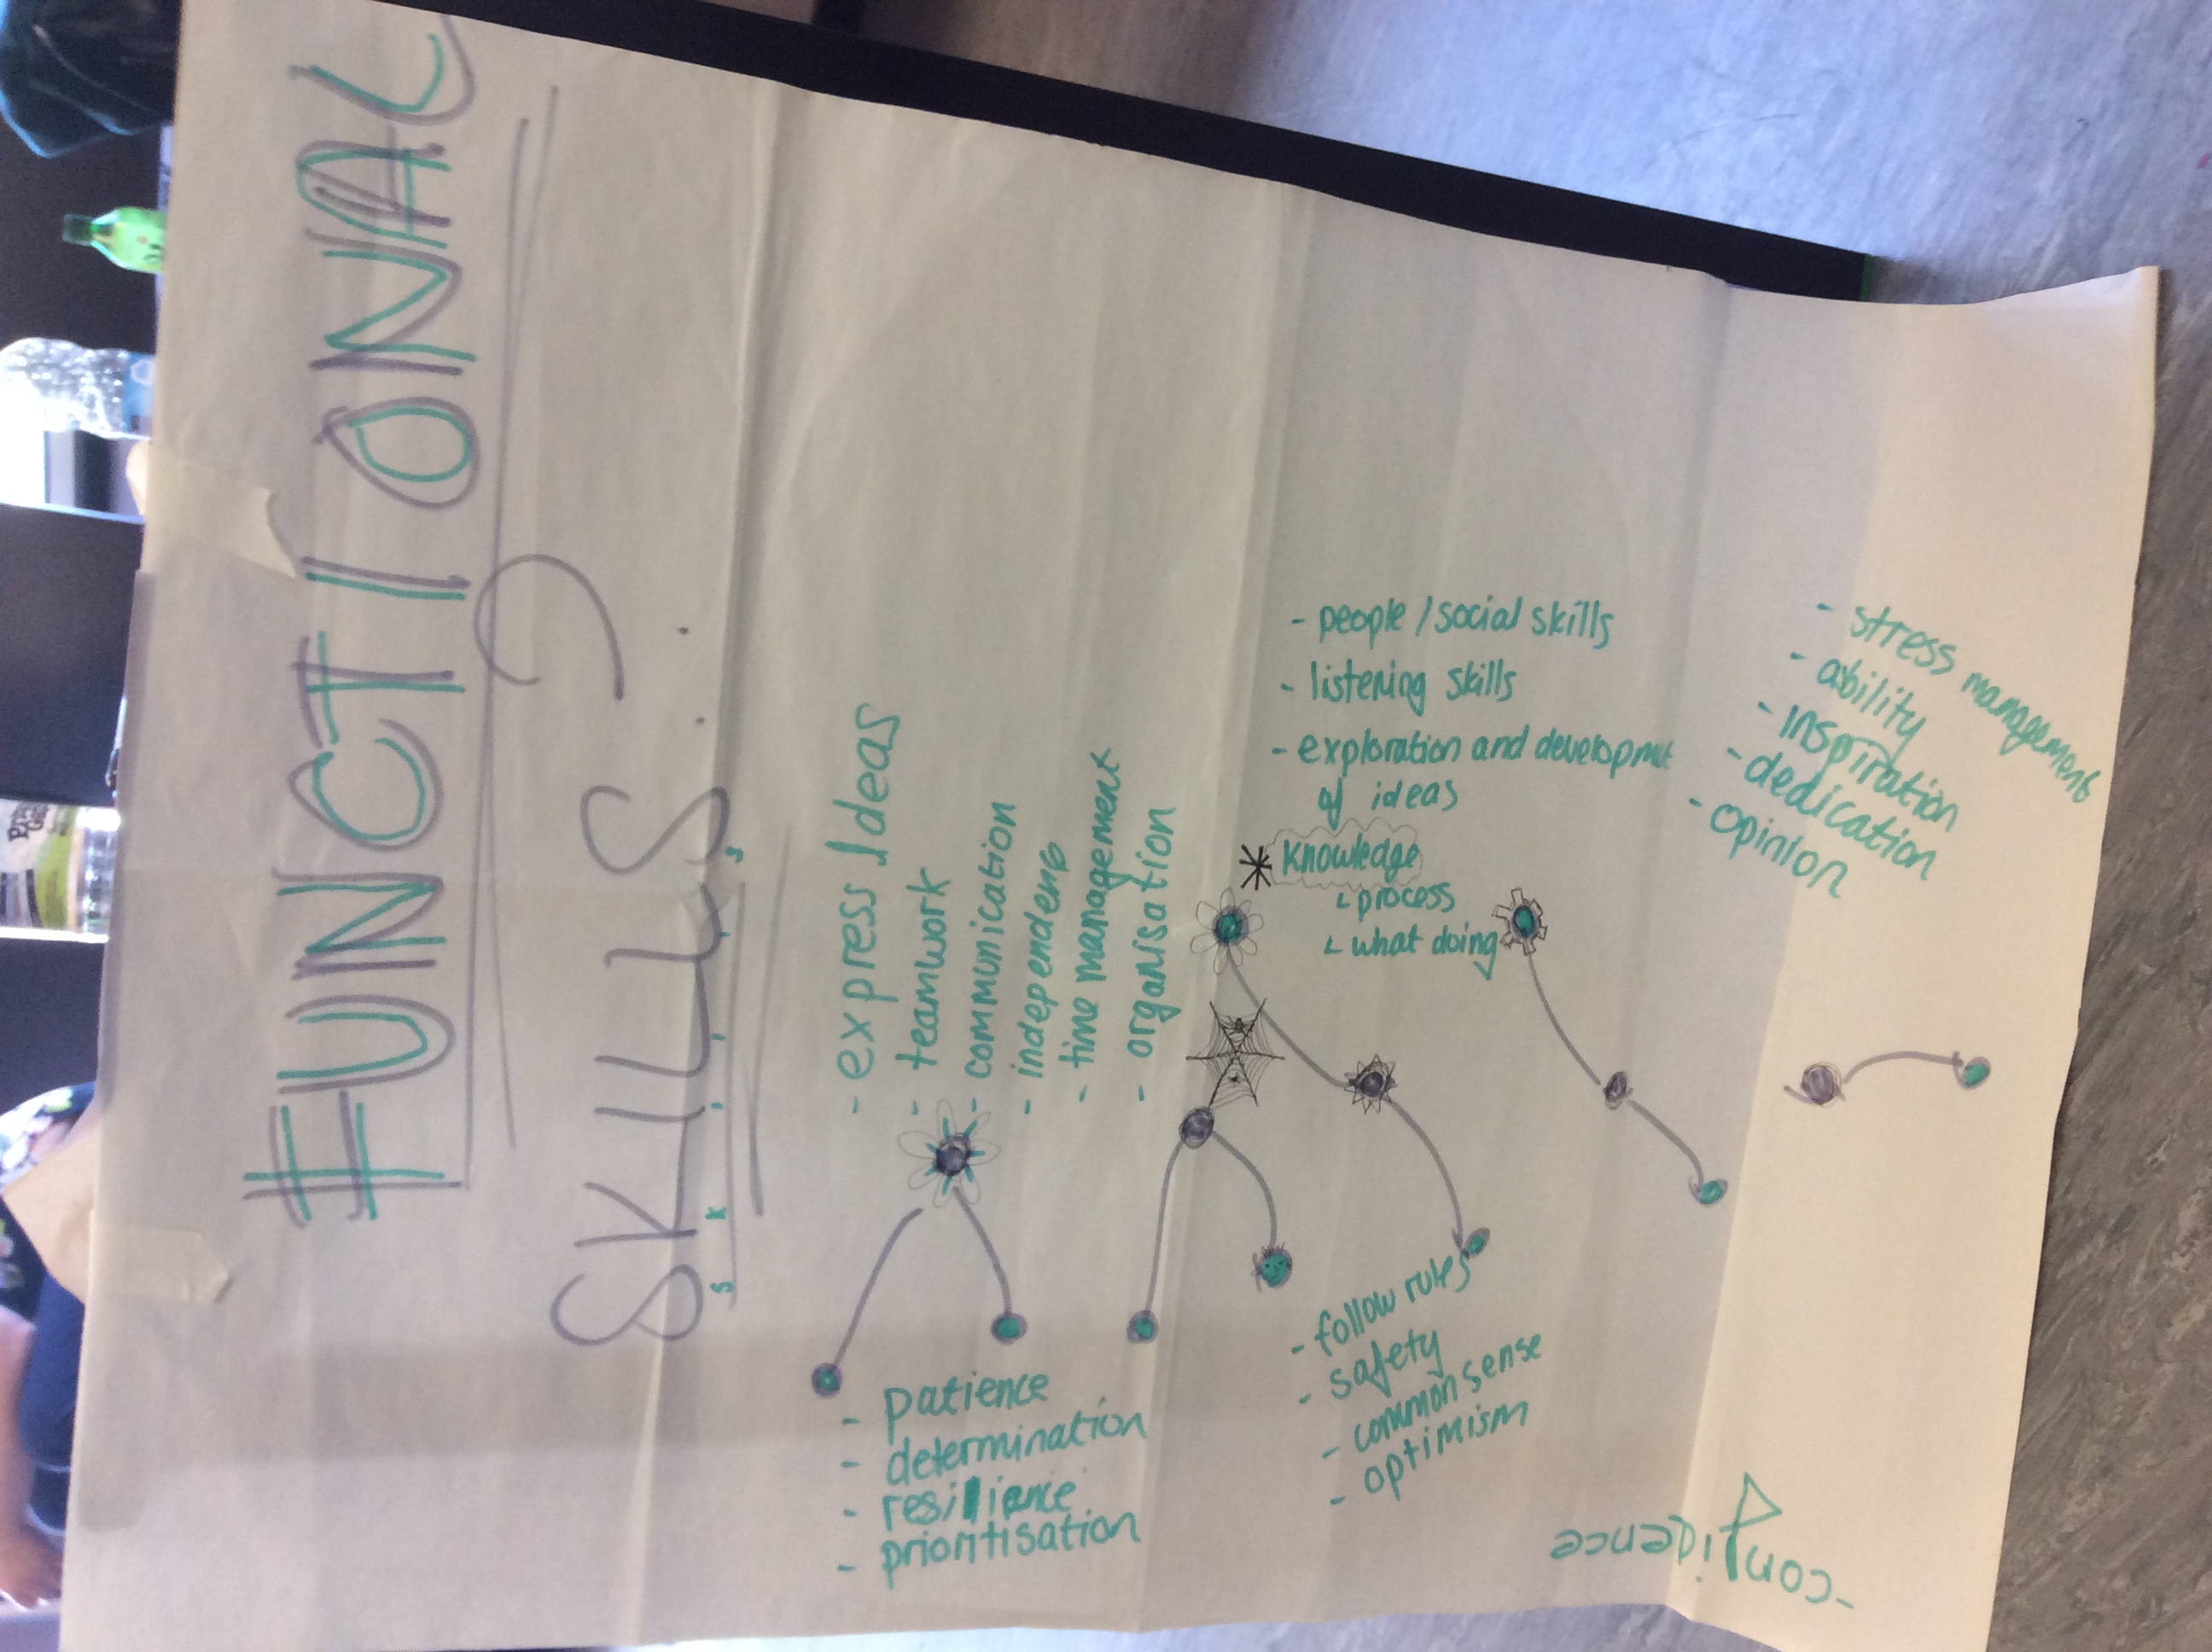 FUNCTIONAL
SKILLS
S K I L L S
- express Ideas
- teamwork
- communication
- independent
- time management
- organisation
- people / social skills
- listening skills
- exploration and development
of ideas
* Knowledge
process
what doing
- stress management
- ability
- inspiration
- dedication
- opinion
- patience
- determination
- resilience
- prioritisation
- follow rules
- safety
- common sense
- optimism
- confidence